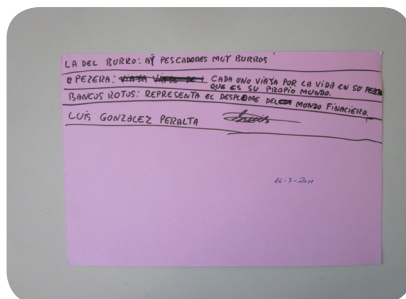 LA DEL BURRO: AY PESCADORES MUY BURROS
PEZERA: CADA UNO VIAYA POR LA VIDA EN SU PEZERA
QUE ES SU PROPIO MUNDO.
BANCOS ROTOS: REPRESENTA EL DESPLOME DEL MUNDO FINACIERO.
LUIS GONZALEZ PERALTA
16-3-2011